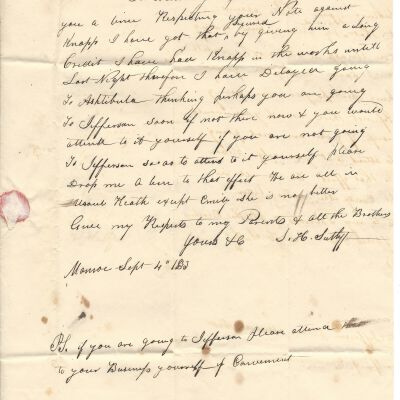 you a line Respecting your Note against
Knapp I have got that secured by giving him a long
Credit I have had Knapp in the works until
Last Night therefore I have Delayed going
To Ashtibula thinking perhaps you are going
To Jefferson soon if not there now & you would
attend to it yourself if you are not going
To Jefferson so as to attend to it yourself please
Drop me a line to that effect We are all in
usual Heath except Emily she is no better
Give my Respects to my Parents & all the Brothers
Yours &c S. H. Sutliff
Monroe Sept 4th
PS. if you are going to Jefferson Please attend
to your Business yourself if Convenient